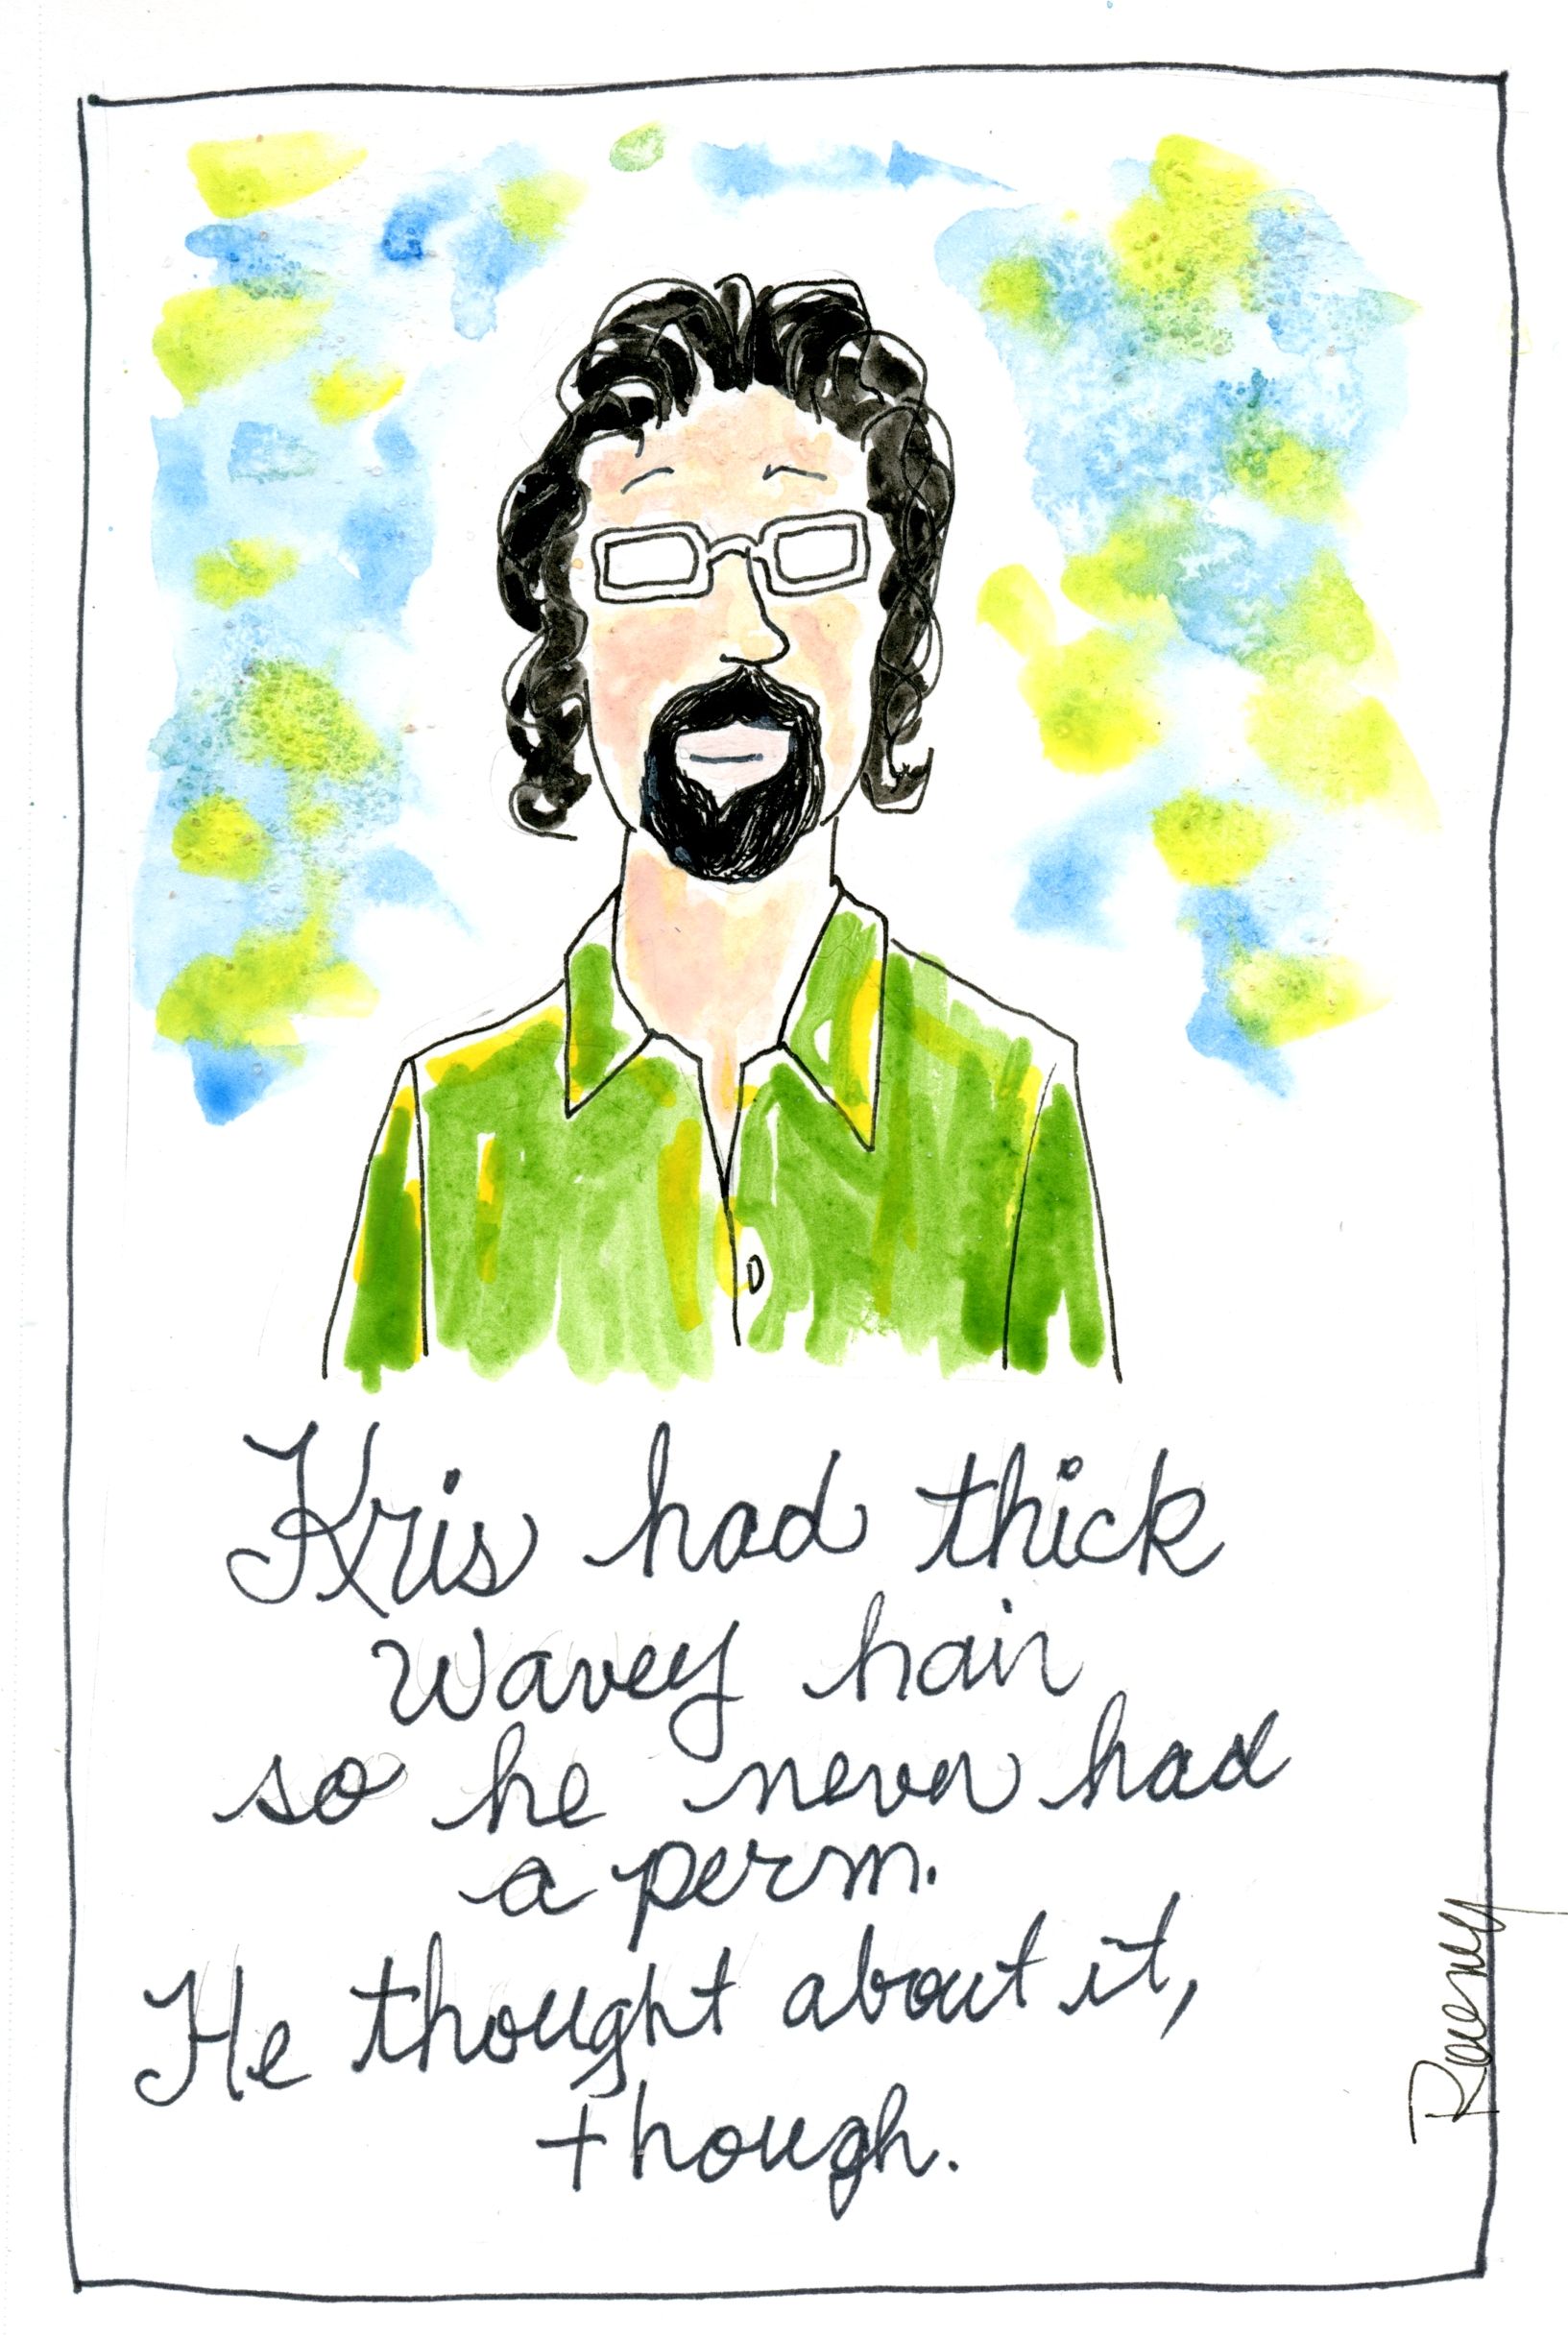 Kris had thick
wavey hair
so he never had
a perm.
He thought about it,
though.